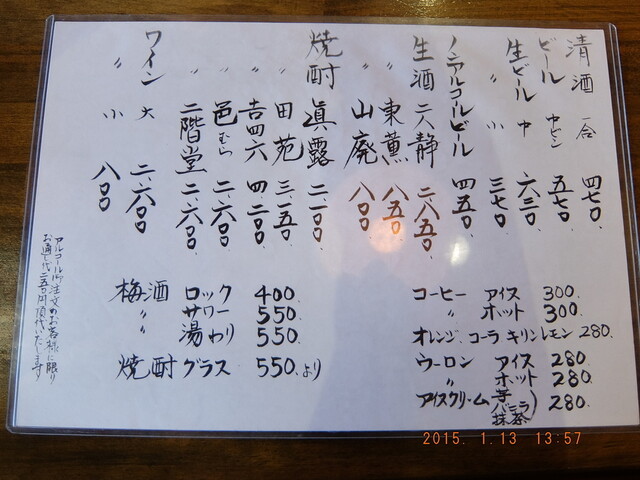 清酒 一合 四七〇
ビール 中ビン 五七〇
生ビール 中 六三〇
〃 小 三七〇
ノンアルコールビール 四五〇
生酒 二人静 二、八五〇
〃 東薫 八五〇
〃 山廃 八〇〇
焼酎 眞露 二、一〇〇
〃 田苑 三、一五〇
〃 吉四六 四、二〇〇
〃 邑むら 二、六〇〇
〃 二階堂 二、六〇〇
ワイン 大 二、六〇〇
〃 小 八〇〇
コーヒー アイス 300.
〃 ホット 300.
オレンジ.コーラ キリンレモン 280.
ウーロン アイス 280.
〃 ホット 280.
アイスクリーム (芋 バニラ 抹茶) 280.
梅酒 ロック 400.
〃 サワー 550.
〃 湯わり 550.
焼酎 グラス 550.より
アルコール御注文のお客様に限り
お通し代二五〇円頂戴いたします
2015. 1.13 13:57